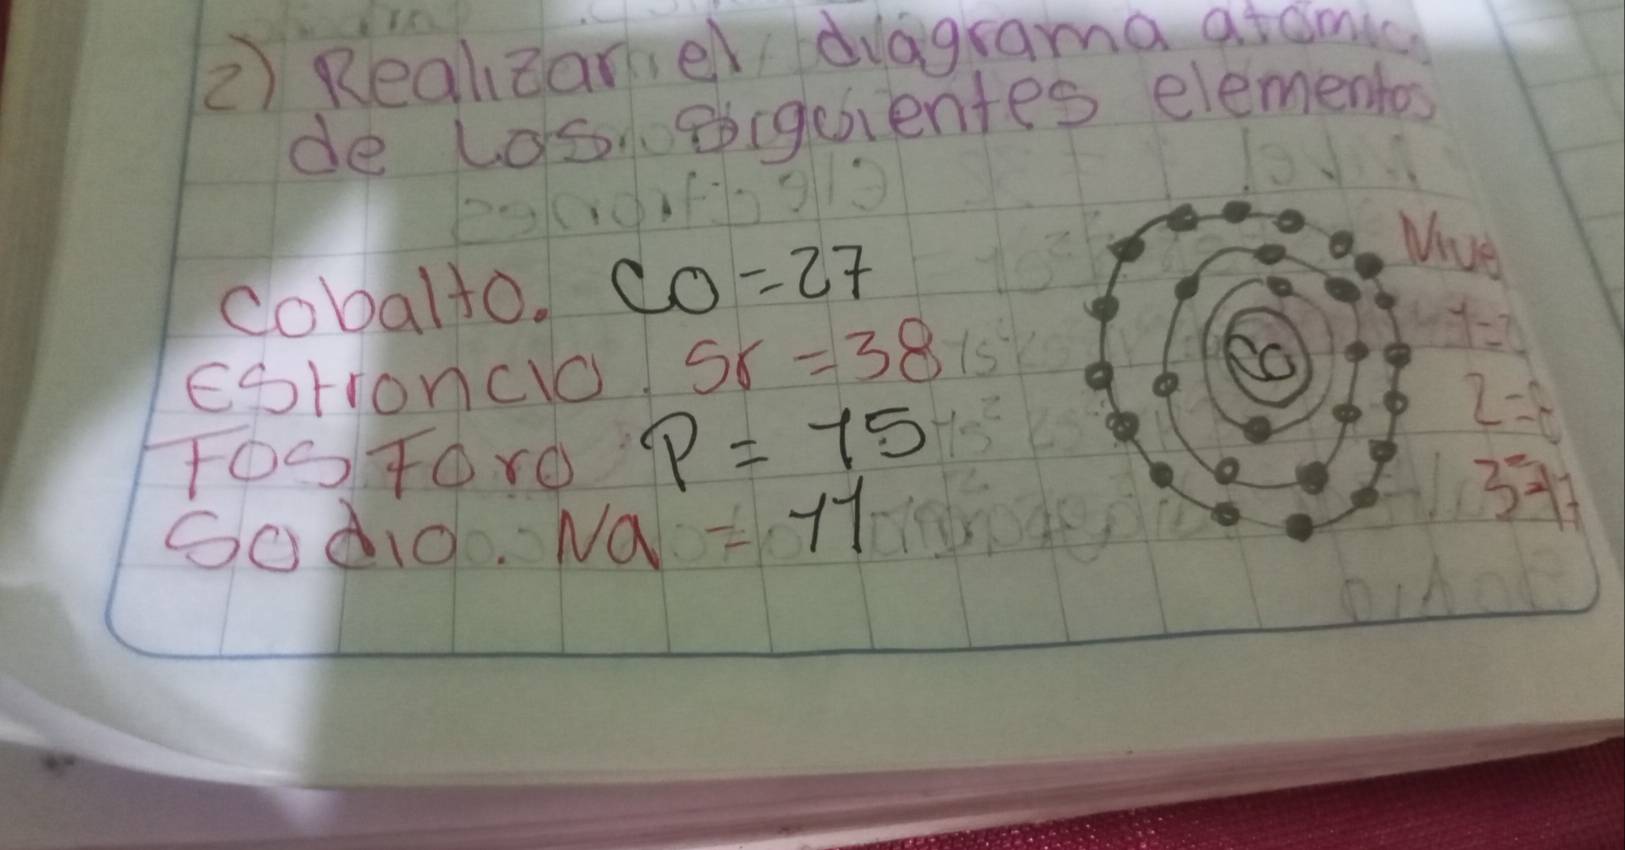 2) Realizar el diagrama atomic
de Los siguientes elementos
cobalto. Co = 27
Estroncio. Sr = 38
Fosforo P = 15
Sodio. Na = 11
Nive
1=2
2=8
3=17
Co